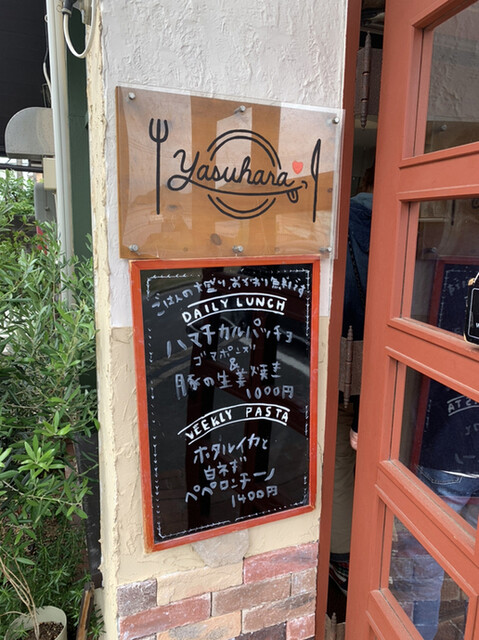 Yasuhara
ごはんの大盛り、おかわり無料です
DAILY LUNCH
ハマチカルパッチョ
ゴマポンズ
&
豚の生姜焼き
1000円
WEEKLY PASTA
ホタルイカと
白ネギ
ペペロンチーノ
1400円